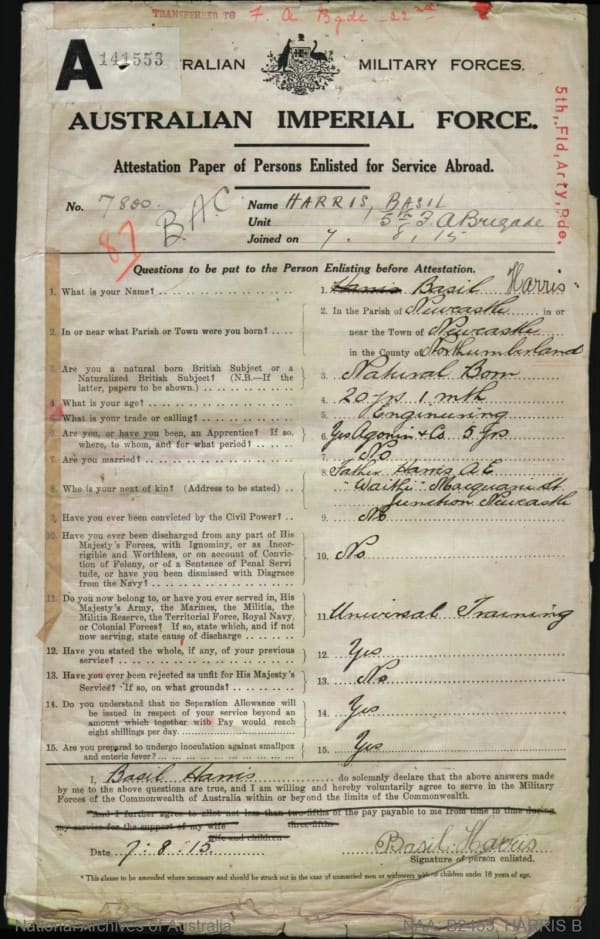 TRANSFERRED TO F. A. Bgde 22nd
A 141553
RALIAN MILITARY FORCES.
AUSTRALIAN IMPERIAL FORCE.
Attestation Paper of Persons Enlisted for Service Abroad.
5th, Fld, Arty, Bde.
No. 7800. Name HARRIS, BASIL
87 B.A.C Unit 5th F. A Brigade
Joined on 7. 8. 15
Questions to be put to the Person Enlisting before Attestation.
1. What is your Name? 1. Harris Basil Harris
2. In or near what Parish or Town were you born? 2. In the Parish of Newcastle in or
near the Town of Newcastle
in the County of Northumberland
3. Are you a natural born British Subject or a
Naturalized British Subject? (N.B.—If the
latter, papers to be shown.) 3. Natural Born
4. What is your age? 4. 20 yrs 1 mth
5. What is your trade or calling? 5. Enginuring
6. Are you, or have you been, an Apprentice? If so,
where, to whom, and for what period? 6. Yes & Co 5 Yrs
7. Are you married? 7. No
8. Who is your next of kin? (Address to be stated) 8. Father Harris A. E.
"Waithi" Macquarie St.
Junction Newcastle
9. Have you ever been convicted by the Civil Power? 9. No
10. Have you ever been discharged from any part of His
Majesty's Forces, with Ignominy, or as Incor-
rigible and Worthless, or on account of Convic-
tion of Felony, or of a Sentence of Penal Servi
tude, or have you been dismissed with Disgrace
from the Navy? 10. No
11. Do you now belong to, or have you ever served in, His
Majesty's Army, the Marines, the Militia, the
Militia Reserve, the Territorial Force, Royal Navy,
or Colonial Forces? If so, state which, and if not
now serving, state cause of discharge 11. Universal Training
12. Have you stated the whole, if any, of your previous
service? 12. Yes
13. Have you ever been rejected as unfit for His Majesty's
Service? If so, on what grounds? 13. No
14. Do you understand that no Seperation Allowance will
be issued in respect of your service beyond an
amount which together with Pay would reach
eight shillings per day. 14. Yes
15. Are you prepared to undergo inoculation against smallpox
and enteric fever? 15. Yes
I, Basil Harris do solemnly declare that the above answers made
by me to the above questions are true, and I am willing and hereby voluntarily agree to serve in the Military
Forces of the Commonwealth of Australia within or beyond the limits of the Commonwealth.
*And I further agree to allot not less than two-fifths of the pay payable to me from time to time during
three-fifths
my service for the support of my wife
wife and children
Date 7.8.15 Basil Harris
Signature of person enlisted.
* This clause to be amended where necessary and should be struck out in the case of unmarried men or widowers without children under 18 years of age.
National Archives of Australia NAA: B2455, HARRIS B